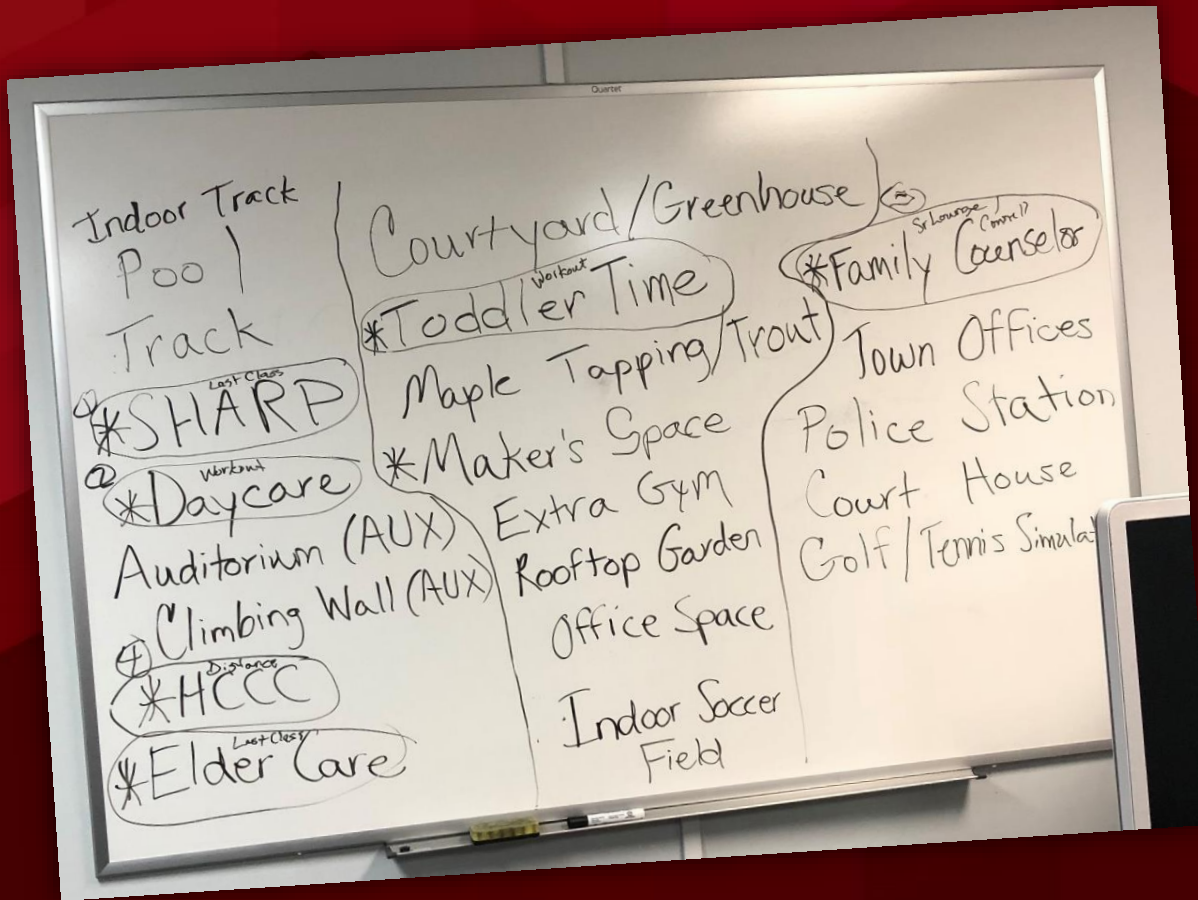 Quartet
Indoor Track
Pool
Track
Last Class
*SHARP
② Workout
*Daycare
Auditorium (AUX)
Climbing Wall (AUX)
④ Distance
*HCCC
Last Class
*Elder Care
Courtyard/Greenhouse
Workout
*Toddler Time
Maple Tapping/Trout
*Maker's Space
Extra Gym
Rooftop Garden
Office Space
Indoor Soccer
Field
Sr Lounge
*Family Counselor
Town Offices
Police Station
Court House
Golf/Tennis Simulat